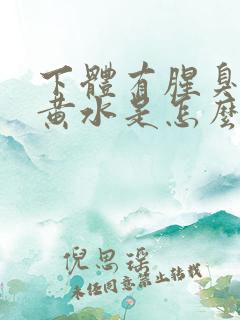 下體有腥臭
黃水是怎麼
倪思瑶
未经同意禁止转载